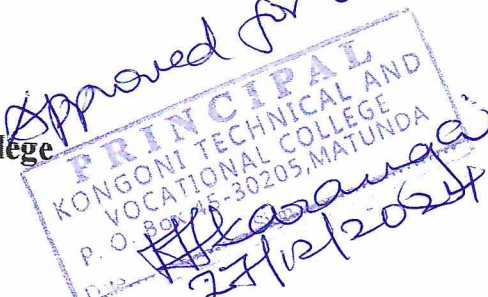 Approved for
lege
PRINCIPAL
KONGONI TECHNICAL AND
VOCATIONAL COLLEGE
P. O. BOX 45-30205, MATUNDA
27/12/2024